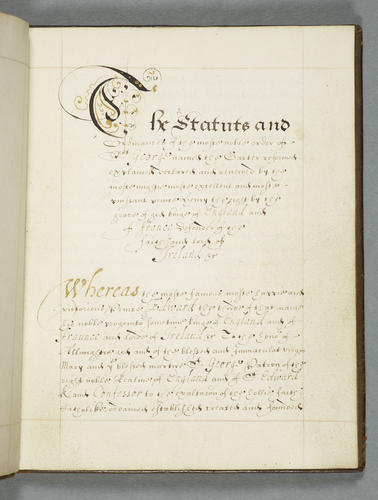 The Statuts and
Ordinances of the moste noble order of
St George named the Garter reformed
explained declared and renewed by the
moste mighte moste excellent and moste
puissant prince Henry the eight by the
grace of god kinge of England and
of France defender of the
faith and lord of
Ireland &c
Whereas the moste famous moste happie and
victorious Prince Edward the third of that name
his noble progenito sometime kinge of England and of
Fraunce and Lorde of Ireland &c To the hono of
Allmightie god and of the blessed and Immaculat virgin
Mary and ye blessed martire St George Patron of the
right noble Realme of England and of St Edward
K and Confessor to the exaltacion of the hollie faith
Catholike ordained established created and founded